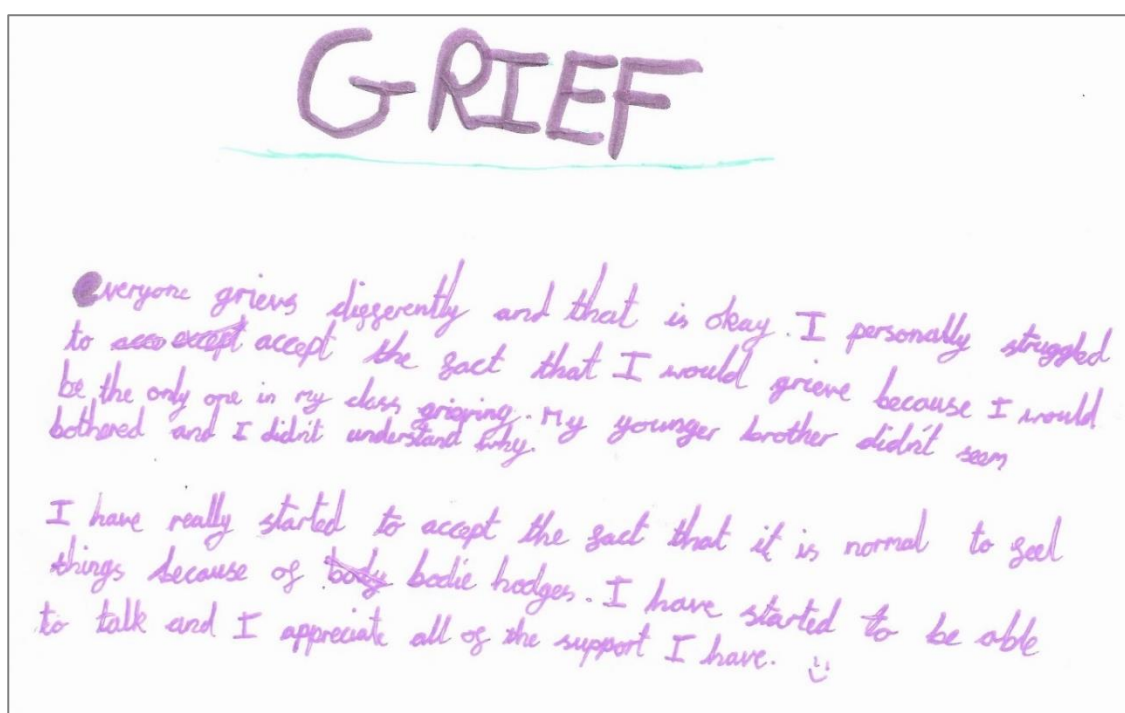 GRIEF
everyone grievs differently and that is okay. I personally struggled
to acco except accept the fact that I would grieve because I would
be the only one in my class grieving. My younger brother didn't seem
bothered and I didn't understand why.
I have really started to accept the fact that it is normal to feel
things because of body bodie hodges. I have started to be able
to talk and I appreciate all of the support I have.